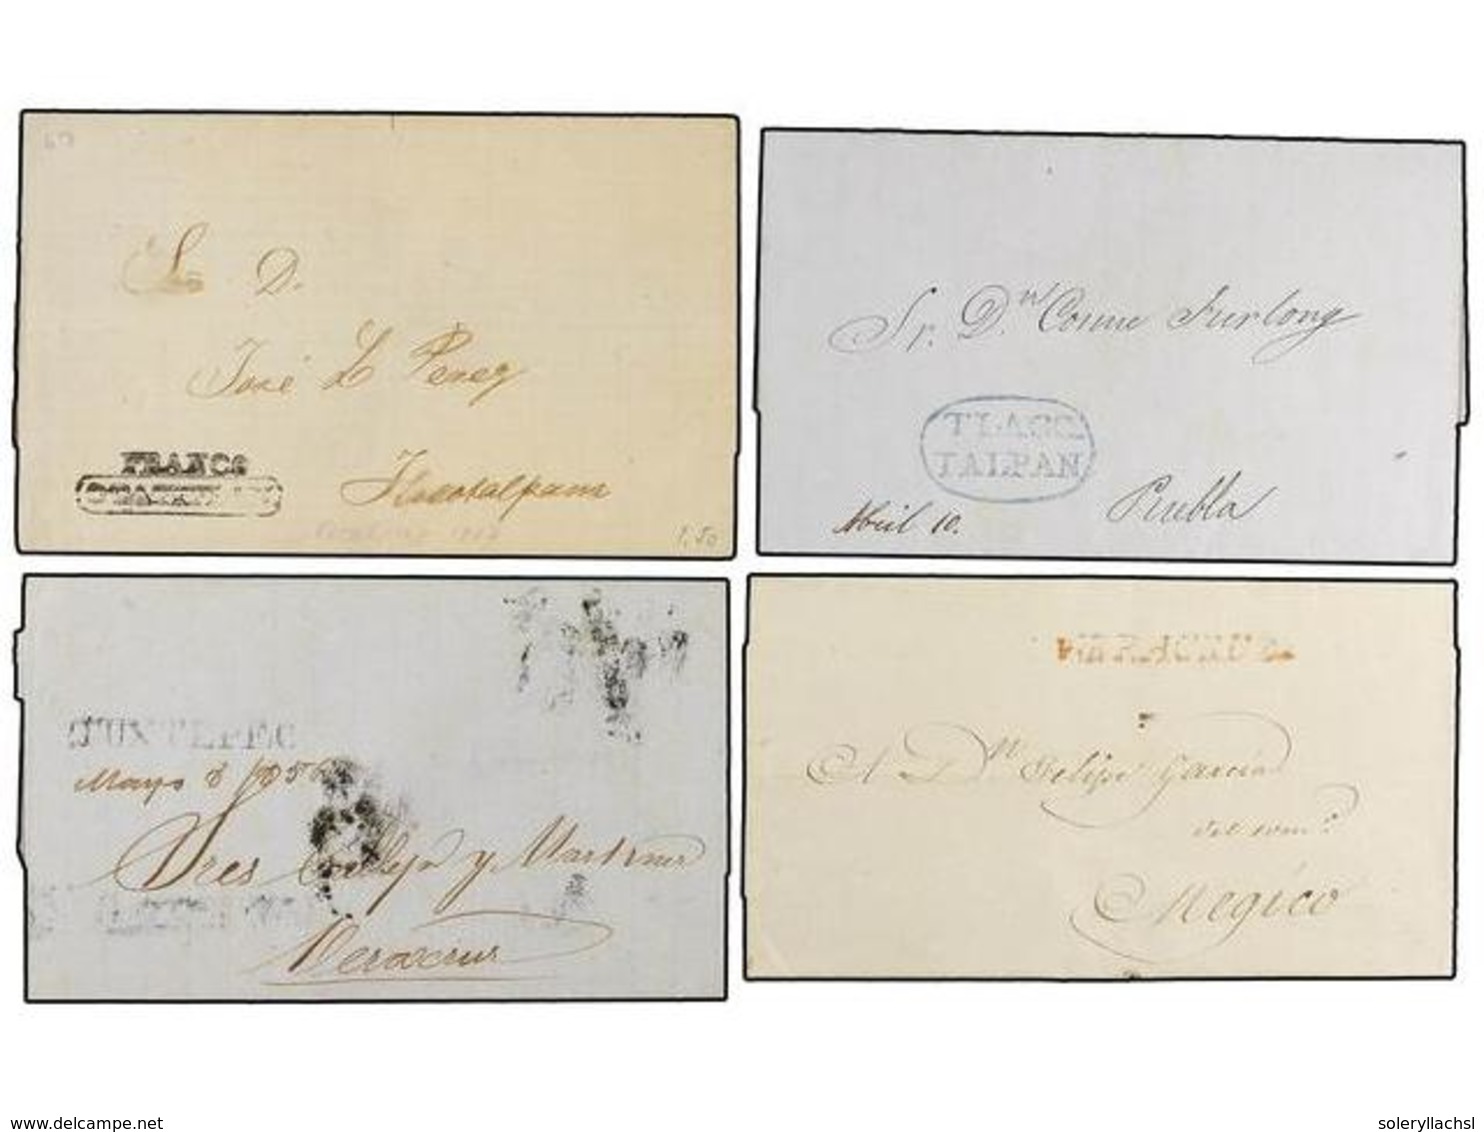 S. D.
José L Perez
FRANCO
Tlacotalpam
1.50
Sr. Dn Cosme Furlong
TLACO
TALPAN
Abril 10.
Puebla
TUXTEPEC
Mayo 8 1856
Sres Callejo y Martinez
Veracruz
VERACRUZ
A Dn Felipe Garcia
del com.o
Megico
www.delcampe.net
soleryllachsl